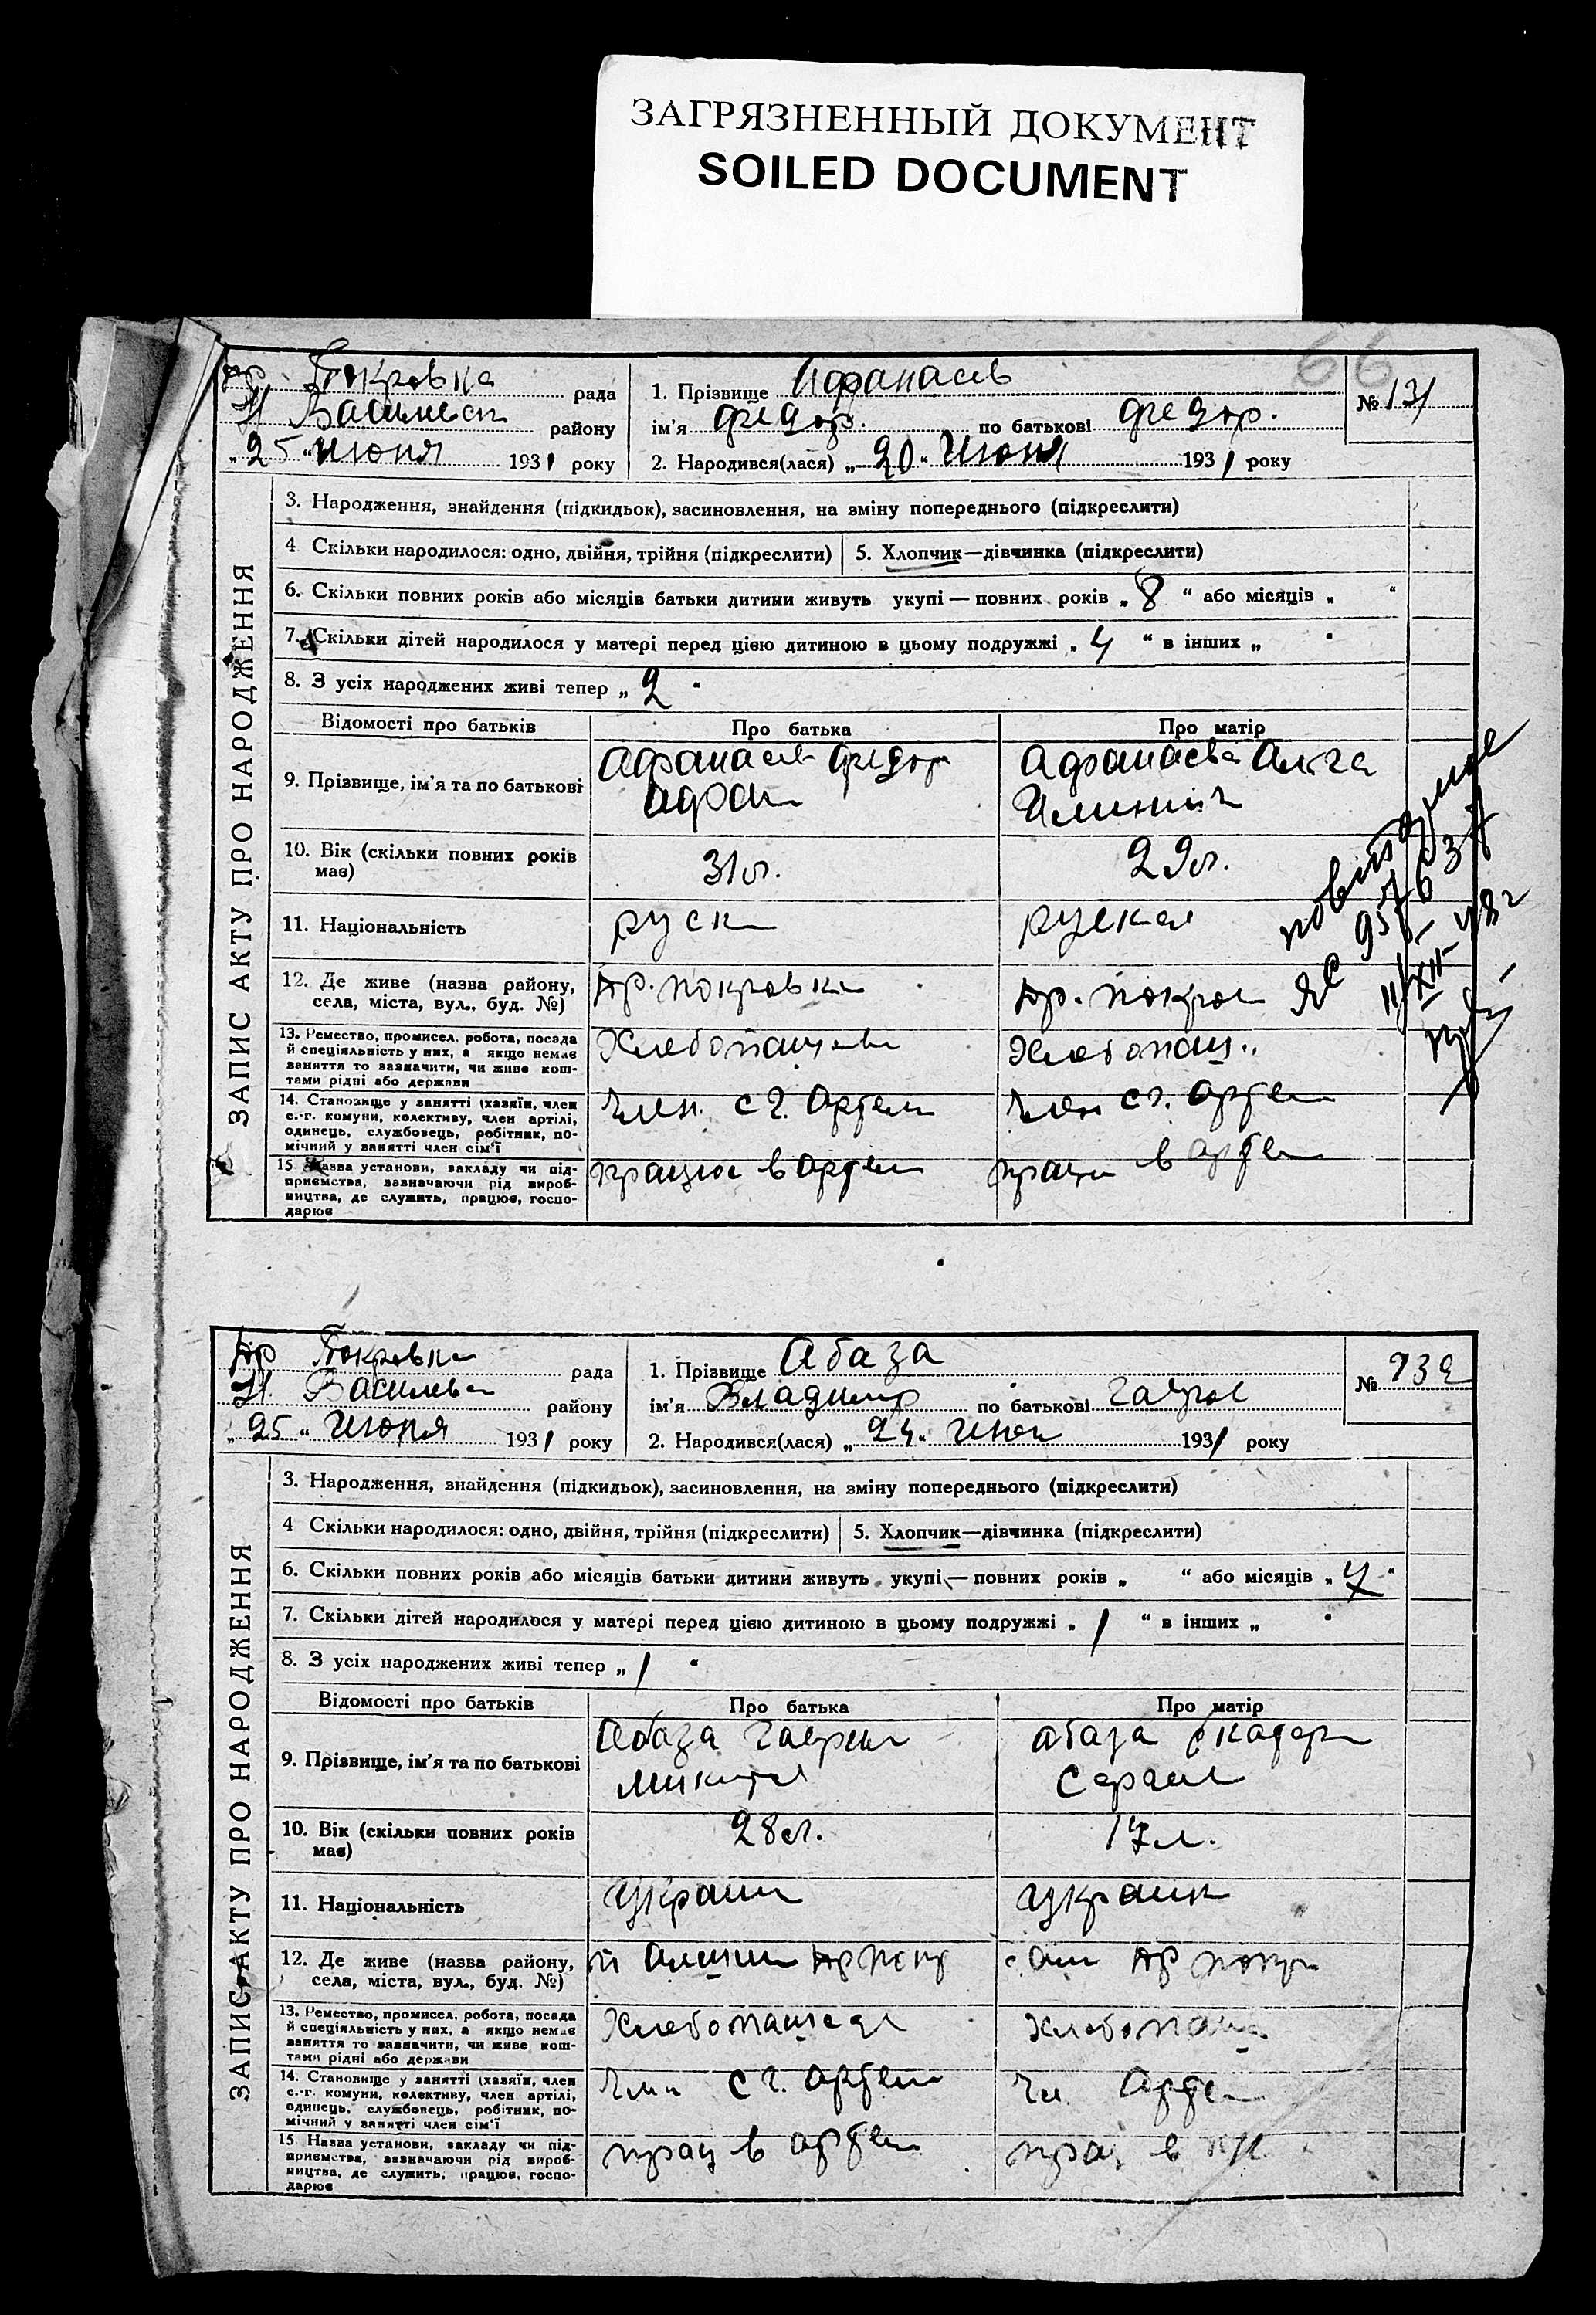 ЗАГРЯЗНЕННЫЙ ДОКУМЕНТ
SOILED DOCUMENT
66
Др. Покровка рада
Н Васильевск району
„25“ Июня 1931 року
1. Прізвище Афанасев
ім'я Федор. по батькові Федор.
2. Народився(лася) „20“ Июня 1931 року
№ 131
ЗАПИС АКТУ ПРО НАРОДЖЕННЯ
3. Народження, знайдення (підкидьок), засиновлення, на зміну попереднього (підкреслити)
4 Скільки народилося: одно, двійня, трійня (підкреслити) 5. Хлопчик—дівчинка (підкреслити)
6. Скільки повних років або місяців батьки дитини живуть укупі — повних років „8“ або місяців „ “
7. Скільки дітей народилося у матері перед цією дитиною в цьому подружжі „4“ в інших „ “
8. З усіх народжених живі тепер „2“
Відомості про батьків Про батька Про матір
9. Прізвище, ім'я та по батькові
Афанасев Федор
Афан
Афанасева Ольга
10. Вік (скільки повних років має) 31 л. 29 л.
11. Національність руск руская
12. Де живе (назва району, села, міста, вул., буд. №) Др. Покровка Др. Покров
13. Ремество, промисел, робота, посада й спеціяльність у них, а якщо немає заняття то зазначити, чи живе коштами рідні або держави Хлебопаш Хлебопаш..
14. Становище у занятті (хазяїн, член с.-г. комуни, колективу, член артілі, одинець, службовець, робітник, помічний у занятті член сім'ї Член. с г. Артели Член с г. Артел
15 Назва установи, закладу чи підприємства, зазначаючи рід виробництва, де служить, працює, господарює працює в Артел праци в артел
Др Покровка рада
Н. Васильев району
„25“ Июня 1931 року
1. Прізвище Абаза
ім'я Владимир по батькові Гаврил
2. Народився(лася) „24“ Июн 1931 року
№ 132
ЗАПИС АКТУ ПРО НАРОДЖЕННЯ
3. Народження, знайдення (підкидьок), засиновлення, на зміну попереднього (підкреслити)
4 Скільки народилося: одно, двійня, трійня (підкреслити) 5. Хлопчик—дівчинка (підкреслити)
6. Скільки повних років або місяців батьки дитини живуть укупі — повних років „ “ або місяців „7“
7. Скільки дітей народилося у матері перед цією дитиною в цьому подружжі „1“ в інших „ “
8. З усіх народжених живі тепер „1“
Відомості про батьків Про батька Про матір
9. Прізвище, ім'я та по батькові
Абаза Гаврил
Микит
Абаза Екатер
Сергеи
10. Вік (скільки повних років має) 28 л. 17 л.
11. Національність Украин украин
12. Де живе (назва району, села, міста, вул., буд. №) Др Покр Др Покр
13. Ремество, промисел, робота, посада й спеціяльність у них, а якщо немає заняття то зазначити, чи живе коштами рідні або держави Хлебопаш Хлебопаш
14. Становище у занятті (хазяїн, член с.-г. комуни, колективу, член артілі, одинець, службовець, робітник, помічний у занятті член сім'ї Член с г. Артели Чл Артел
15 Назва установи, закладу чи підприємства, зазначаючи рід виробництва, де служить, працює, господарює прац в артел прац в